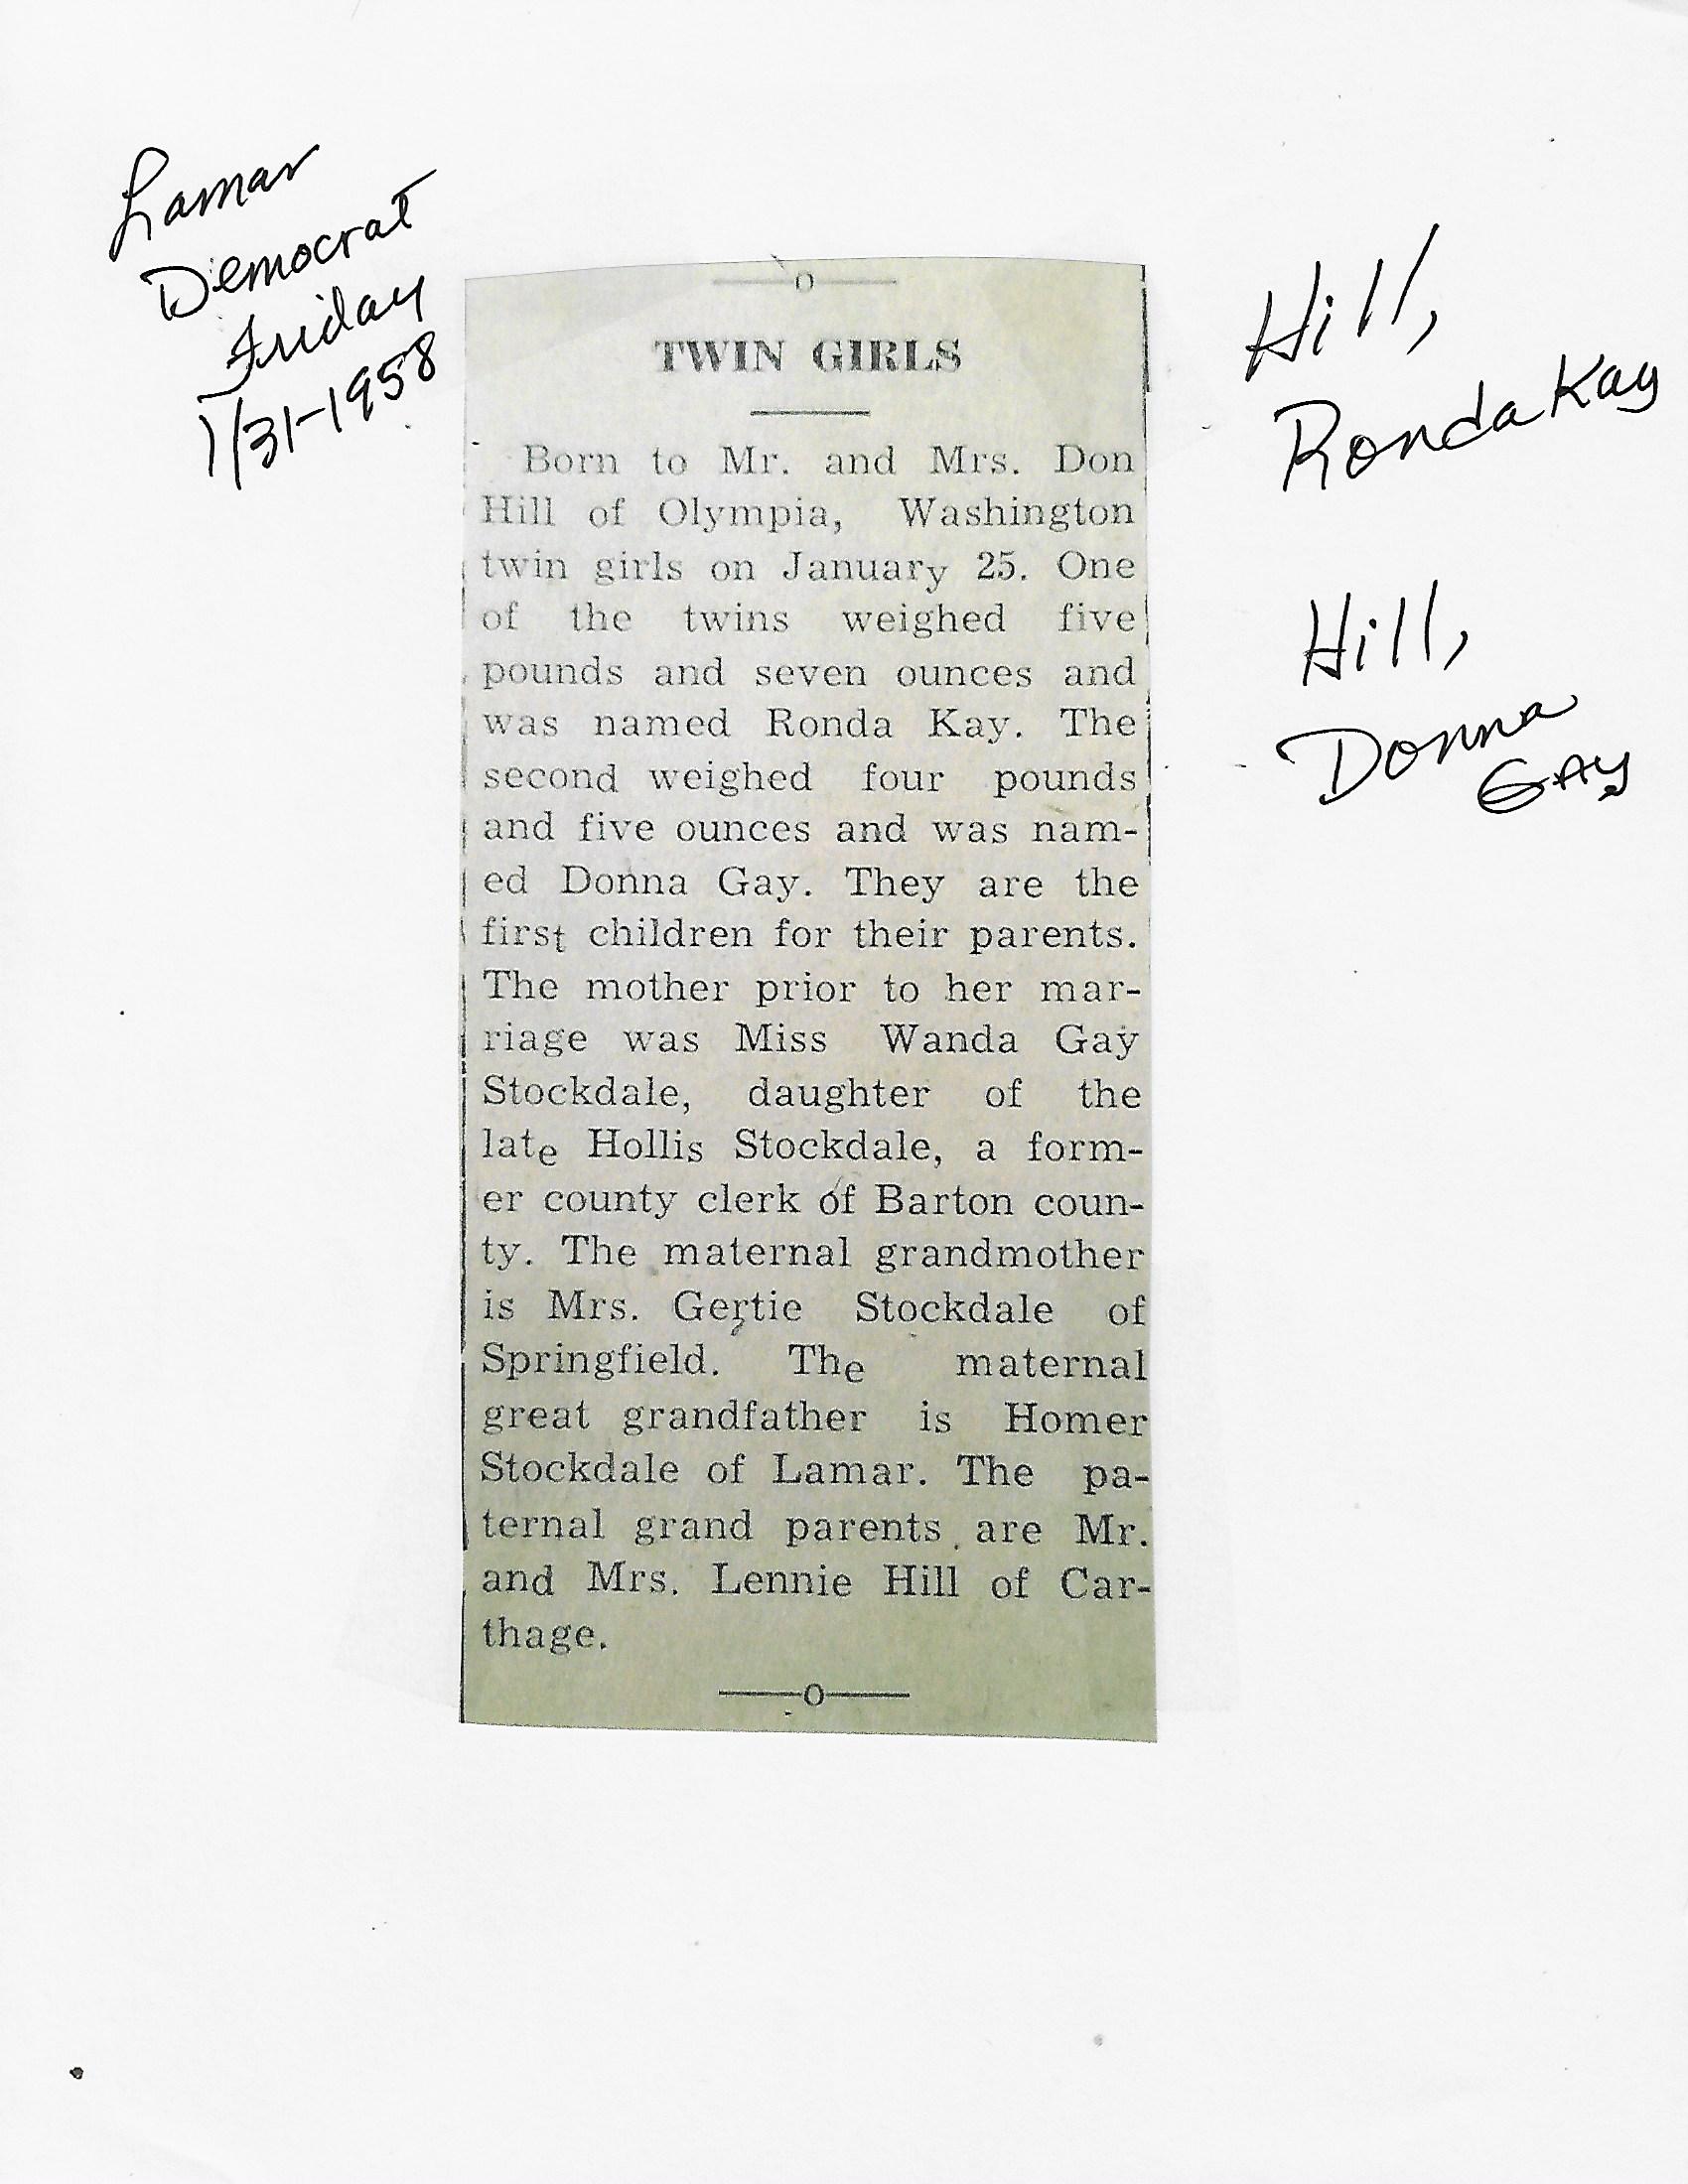 Lamar
Democrat
Friday
1/31-1958
Hill,
Ronda Kay
Hill,
Donna
Gay
—o—
TWIN GIRLS
Born to Mr. and Mrs. Don
Hill of Olympia, Washington
twin girls on January 25. One
of the twins weighed five
pounds and seven ounces and
was named Ronda Kay. The
second weighed four pounds
and five ounces and was nam-
ed Donna Gay. They are the
first children for their parents.
The mother prior to her mar-
riage was Miss Wanda Gay
Stockdale, daughter of the
late Hollis Stockdale, a form-
er county clerk of Barton coun-
ty. The maternal grandmother
is Mrs. Gertie Stockdale of
Springfield. The maternal
great grandfather is Homer
Stockdale of Lamar. The pa-
ternal grand parents are Mr.
and Mrs. Lennie Hill of Car-
thage.
—o—